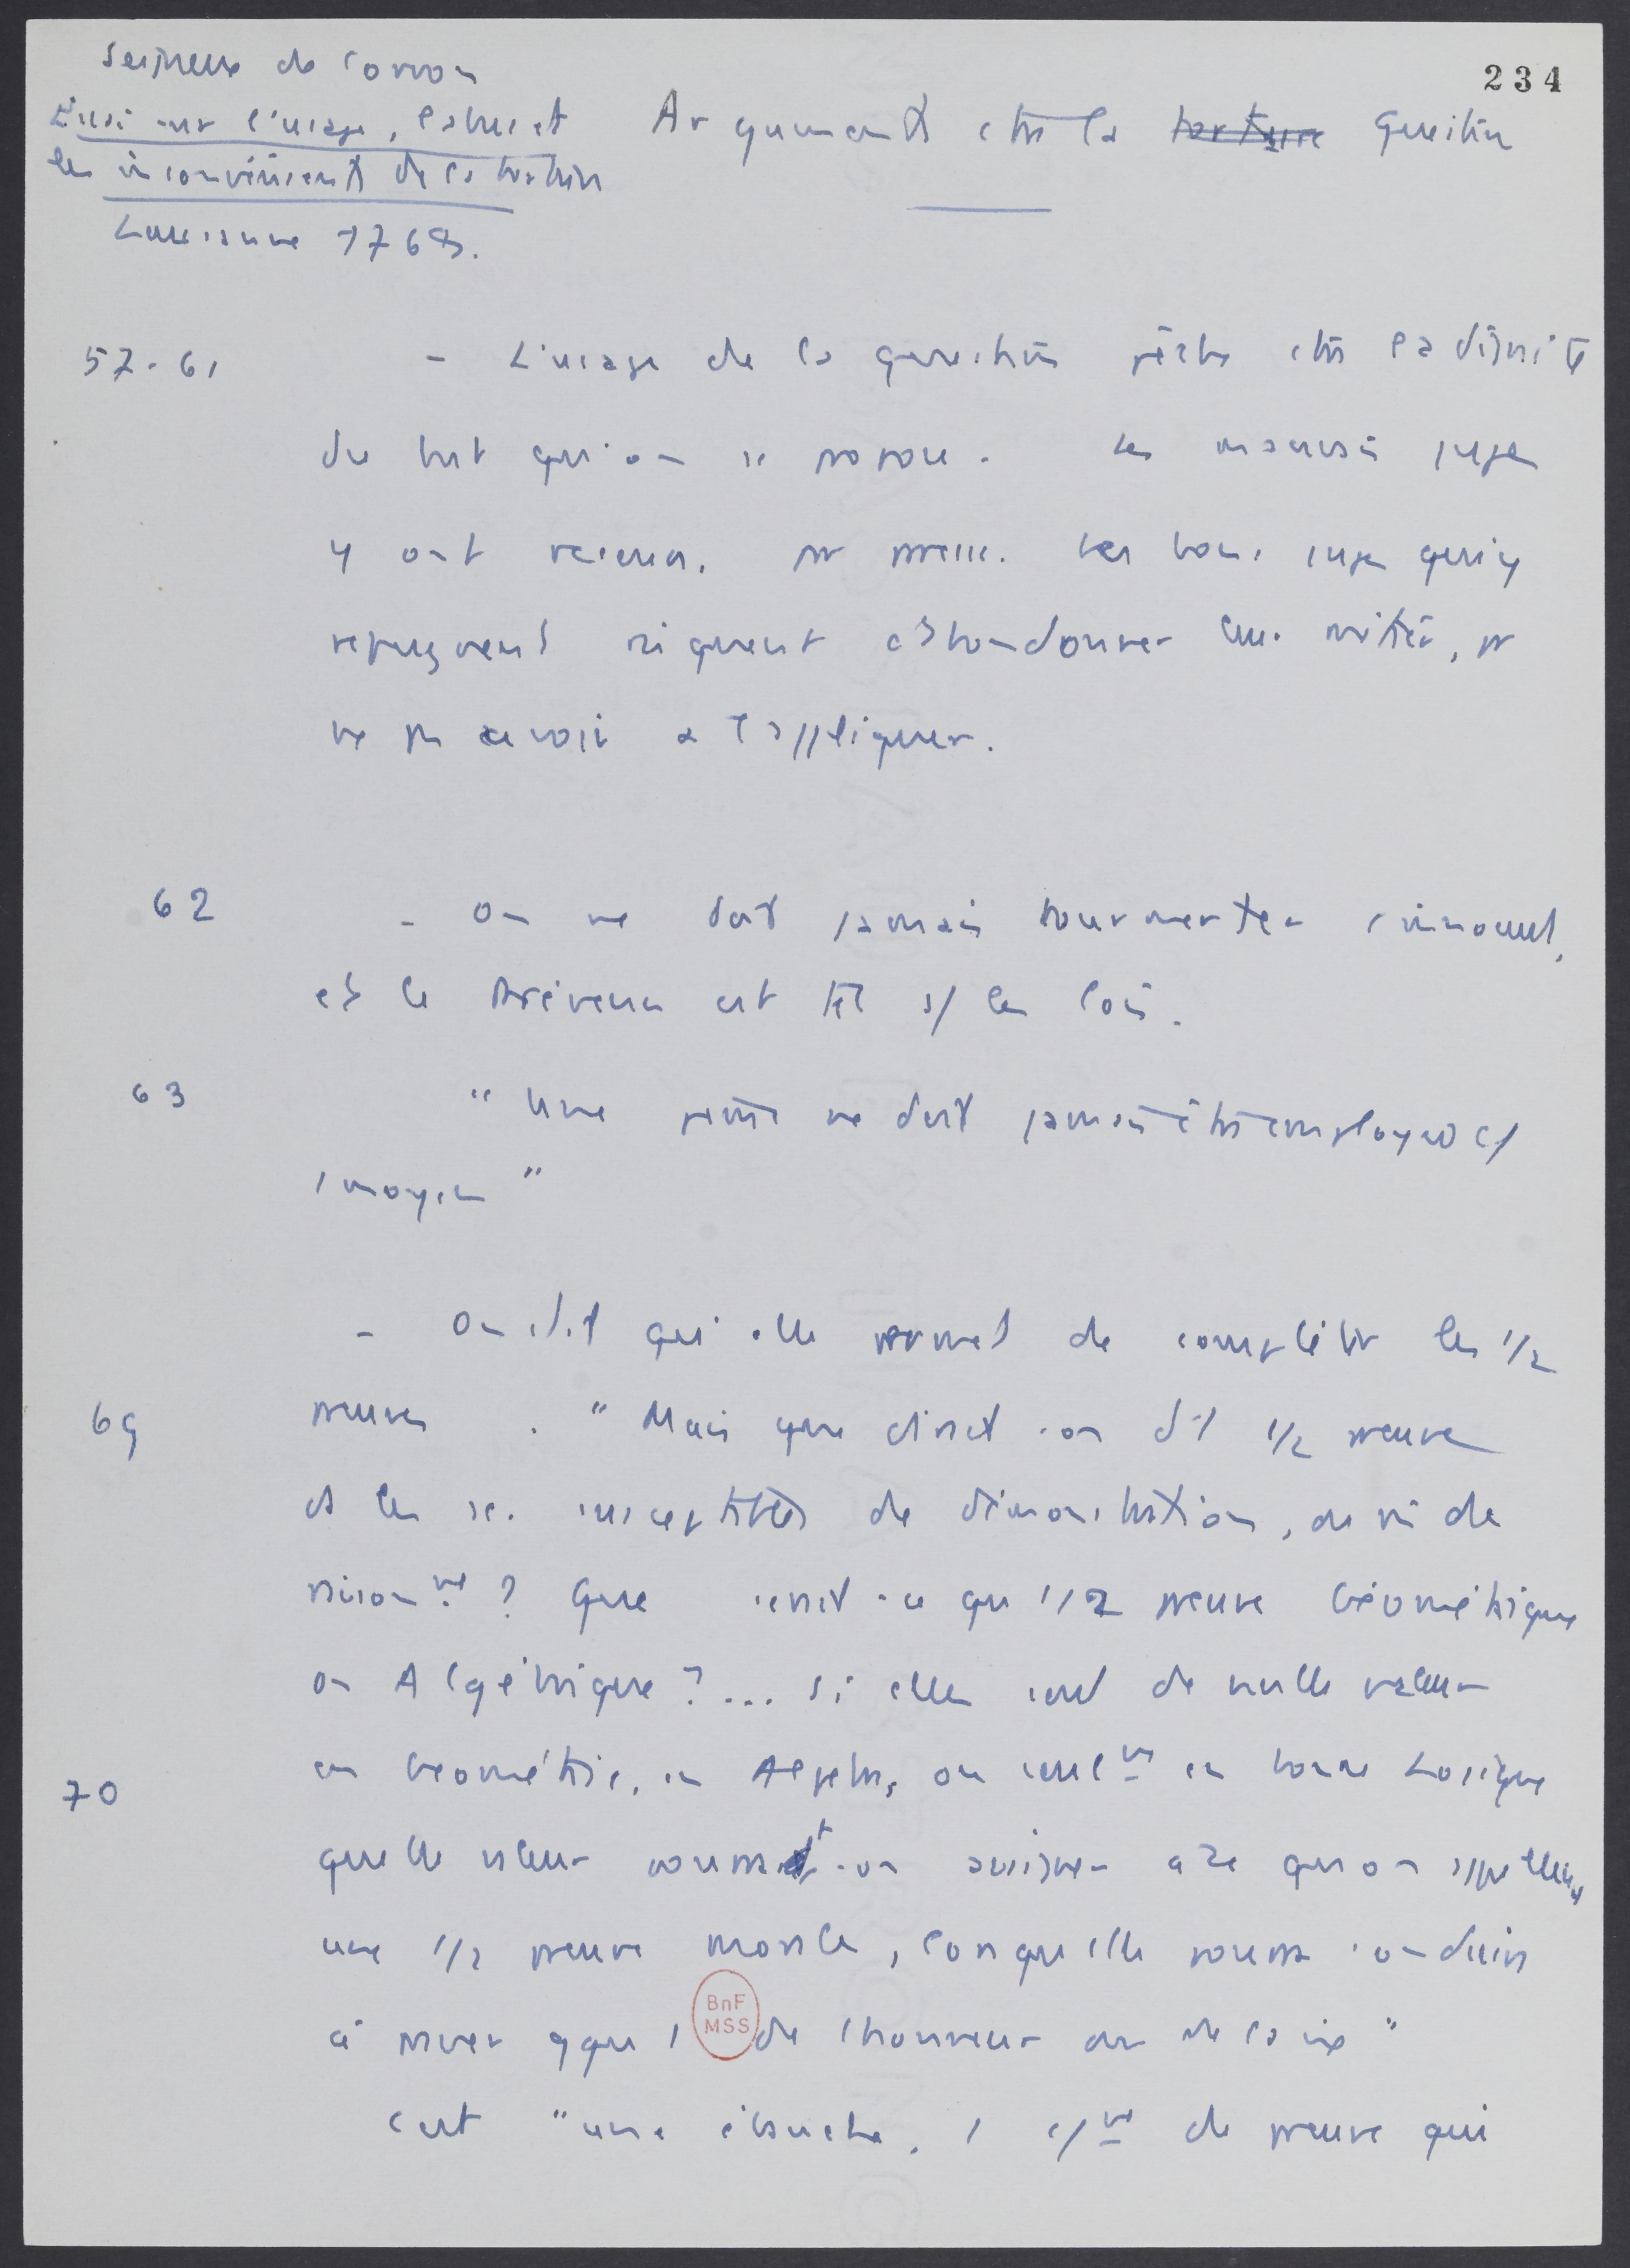 234
Seigneux de Correvon
Essai sur l'usage, l'abus et
les inconvénients de la torture
Lausanne 1768.
Arguments ctre la torture question
57-61
- L'usage de la question pèche ctre la dignité
du but qu'on se propose. Les mauvais juges
y ont recours. Les bons juges qui y
répugnent risquent d'abandonner leur métier, pr
ne pas avoir à l'appliquer.
62
- On ne doit jamais tourmenter 1 innocent,
et le prévenu est tel s/ les lois.
63
"Une peine ne doit jamais être employée c/
1 moyen"
- On dit qu'elle permet de compléter les 1/2
69
preuves. "Mais que dirait-on d'1 1/2 preuve
ds les sc. susceptibles de démonstration, ou de
raisonnt ? Que serait-ce qu'1/2 preuve Géométrique
ou Algébrique ?... Si elles sont de nulle valeur
70
en Géométrie, en Algèbre, ou seult en bonne Logique
quelle valeur pourrait-on assigner à ce qu'on appellera
une 1/2 preuve morale, lorsqu'elle pourra conduire
à priver qque 1 de l'honneur ou de la vie"
BnF
MSS
C'est "une ébauche, 1 c/nt de preuve qui